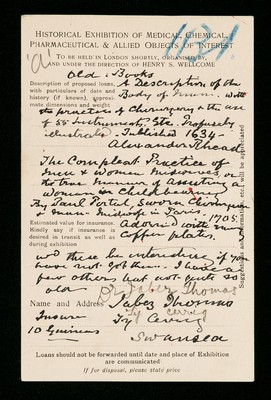 1131.
HISTORICAL EXHIBITION OF MEDICAL, CHEMICAL,
PHARMACEUTICAL & ALLIED OBJECTS OF INTEREST
TO BE HELD IN LONDON SHORTLY, ORGANISED BY,
AND UNDER THE DIRECTION OF HENRY S. WELLCOME
"a" Old Books
Description of proposed loans,
with particulars of date and
history (if known), approxi-
mate dimensions and weight
A Description of the
Body of Man. With
the practice of Chirurgery & the use
of 55 Instruments. Etc. Profusely
illustrated. Published 1634
Alexander Rhead
The Compleat Practice of
Men & Women Midwives, or
the true manner of assisting a
Woman in Child
By Paul Portal, Sworn Chirurgeon
& man Midwife in Paris.
1705.
Estimated value for insurance.
Kindly say if insurance is
desired in transit as well as
during exhibition
Adorned with many
Copper plates.
wd these be interesting if you
have not got them. I have a
few others, but not quite so
old
Dr Jaber Thomas
Name and Address
Jabez Thomas
Insure
Ty Cerrig
10 Guineas
Swansea
Loans should not be forwarded until date and place of Exhibition
are communicated
If for disposal, please state price